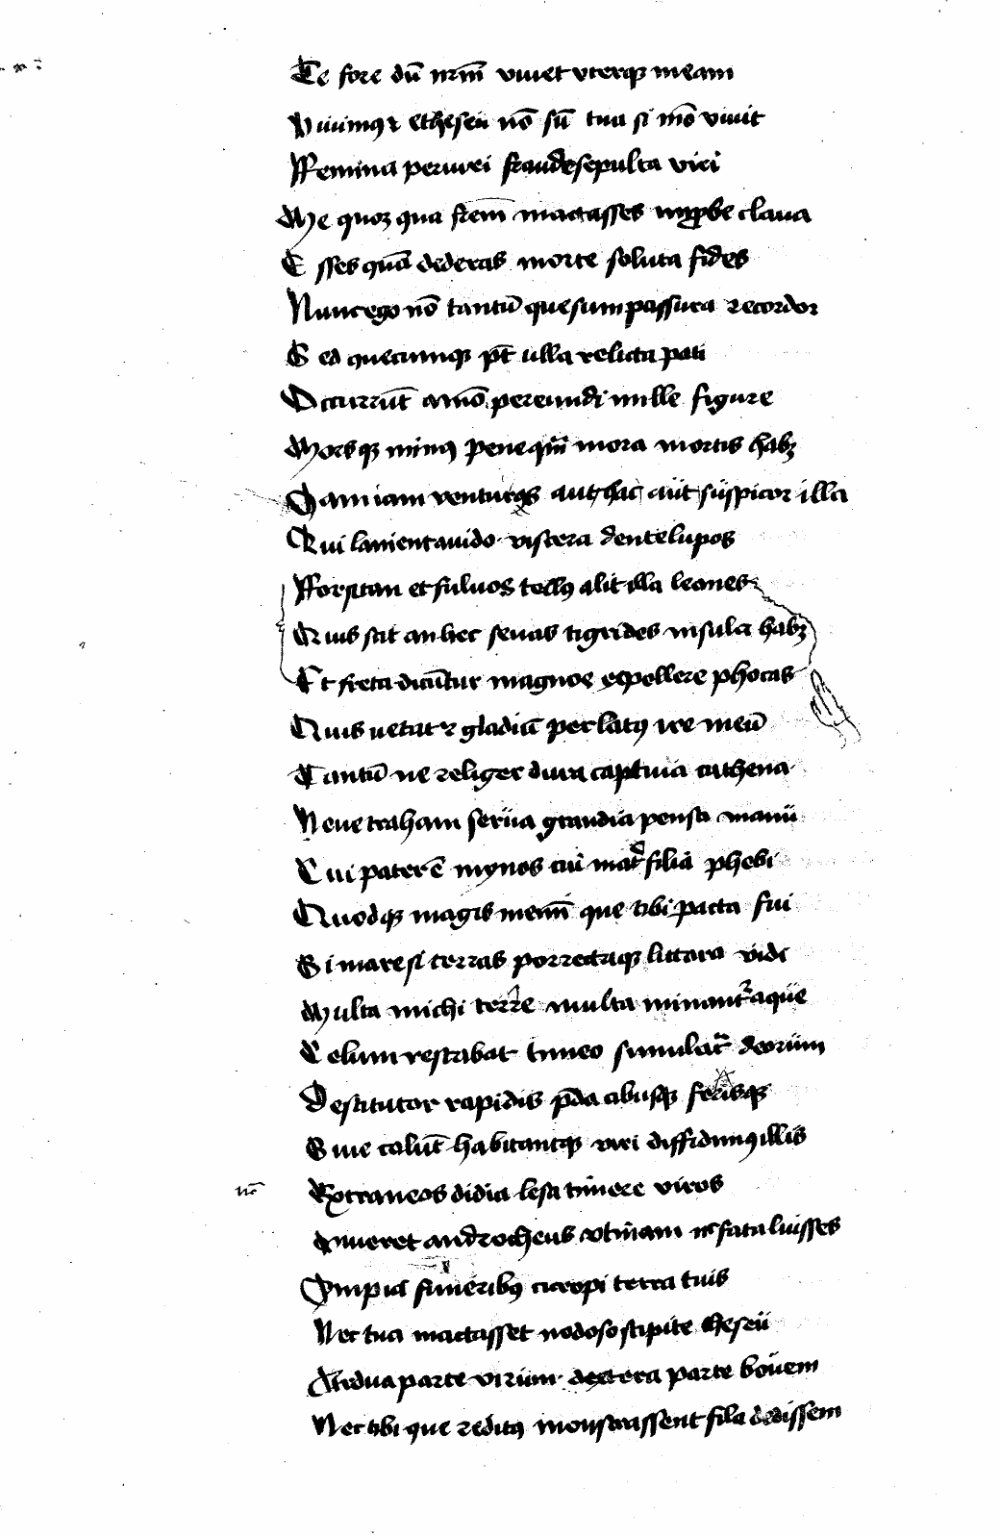 Te fore dū nrm̄ viuet vterqꝫ meam
Viuimꝯ et theseu nō sū tua si mō viuit
Femina periuri fraude sepulta viri
Me quoqꝫ qua frem̄ mactasses improbe claua
Esses quā dederas morte soluta fides
Nunc ego nō tantū que sum passura recordor
Sed quecumqꝫ pt̄ ulla relicta pati
Occurrūt aīo pereundi mille figure
Morsqꝫ minꝯ pene qm̄ mora mortis habꝫ
Iam iam venturos aut hac aut suspicor illa
Qui lanient auido viscera dente lupos
Forsitan et fuluos tellꝯ alit illa leones
Quis scit an hec seuas tigrides insula habꝫ
Et freta dicūtur magnos expellere phocas
Quis uetat et gladiū per latꝯ ire meū
Tantū ne religer dura captiua cathena
Neue traham serua grandia pensa manu
Cui pater ē mynos cui mat̄ filia phebi
Quodqꝫ magis memī que tibi pacta fui
Si mare si terras porrectaqꝫ littora vidi
Multa michi terre multa minant aque
Celum restabat timeo simulac̄ deorum
Destituor rapidis p̄da cibusqꝫ ferisqꝫ
Siue colūt habitantqꝫ viri diffidimꝯ illis
nō Externos didici lesa timere viros
Viueret androcheus vtinam nc̄ fata luisses
Impia funeribꝯ cicropi terra tuis
Nec tua mactasset nodoso stipite theseu
Ardua parte virum dextera parte bouem
Nec tibi que reditꝯ monstrassent fila dedissem